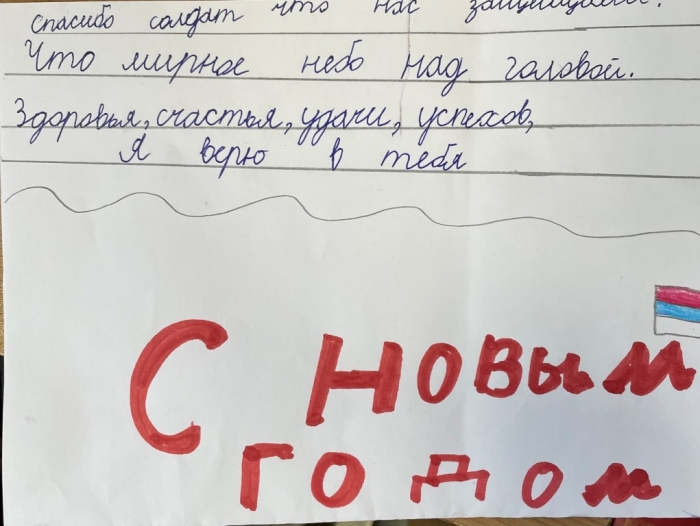 спасибо солдат что нас защищаешь.
Что мирное небо над головой.
Здоровья, счастья, удачи, успехов,
Я верю в тебя
С НОВЫМ
ГОДОМ